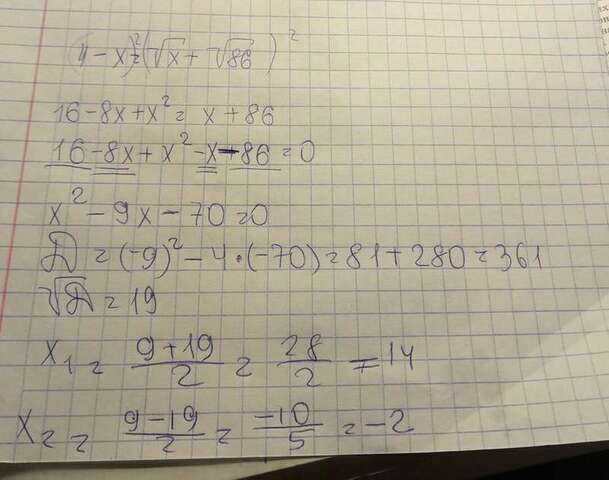 (4-x)²=(√x+√86)²
16-8x+x²=x+86
16-8x+x²-x-86=0
x²-9x-70=0
D=(-9)²-4·(-70)=81+280=361
√D=19
x₁=(9+19)/2=28/2=14
x₂=(9-19)/2=-10/5=-2